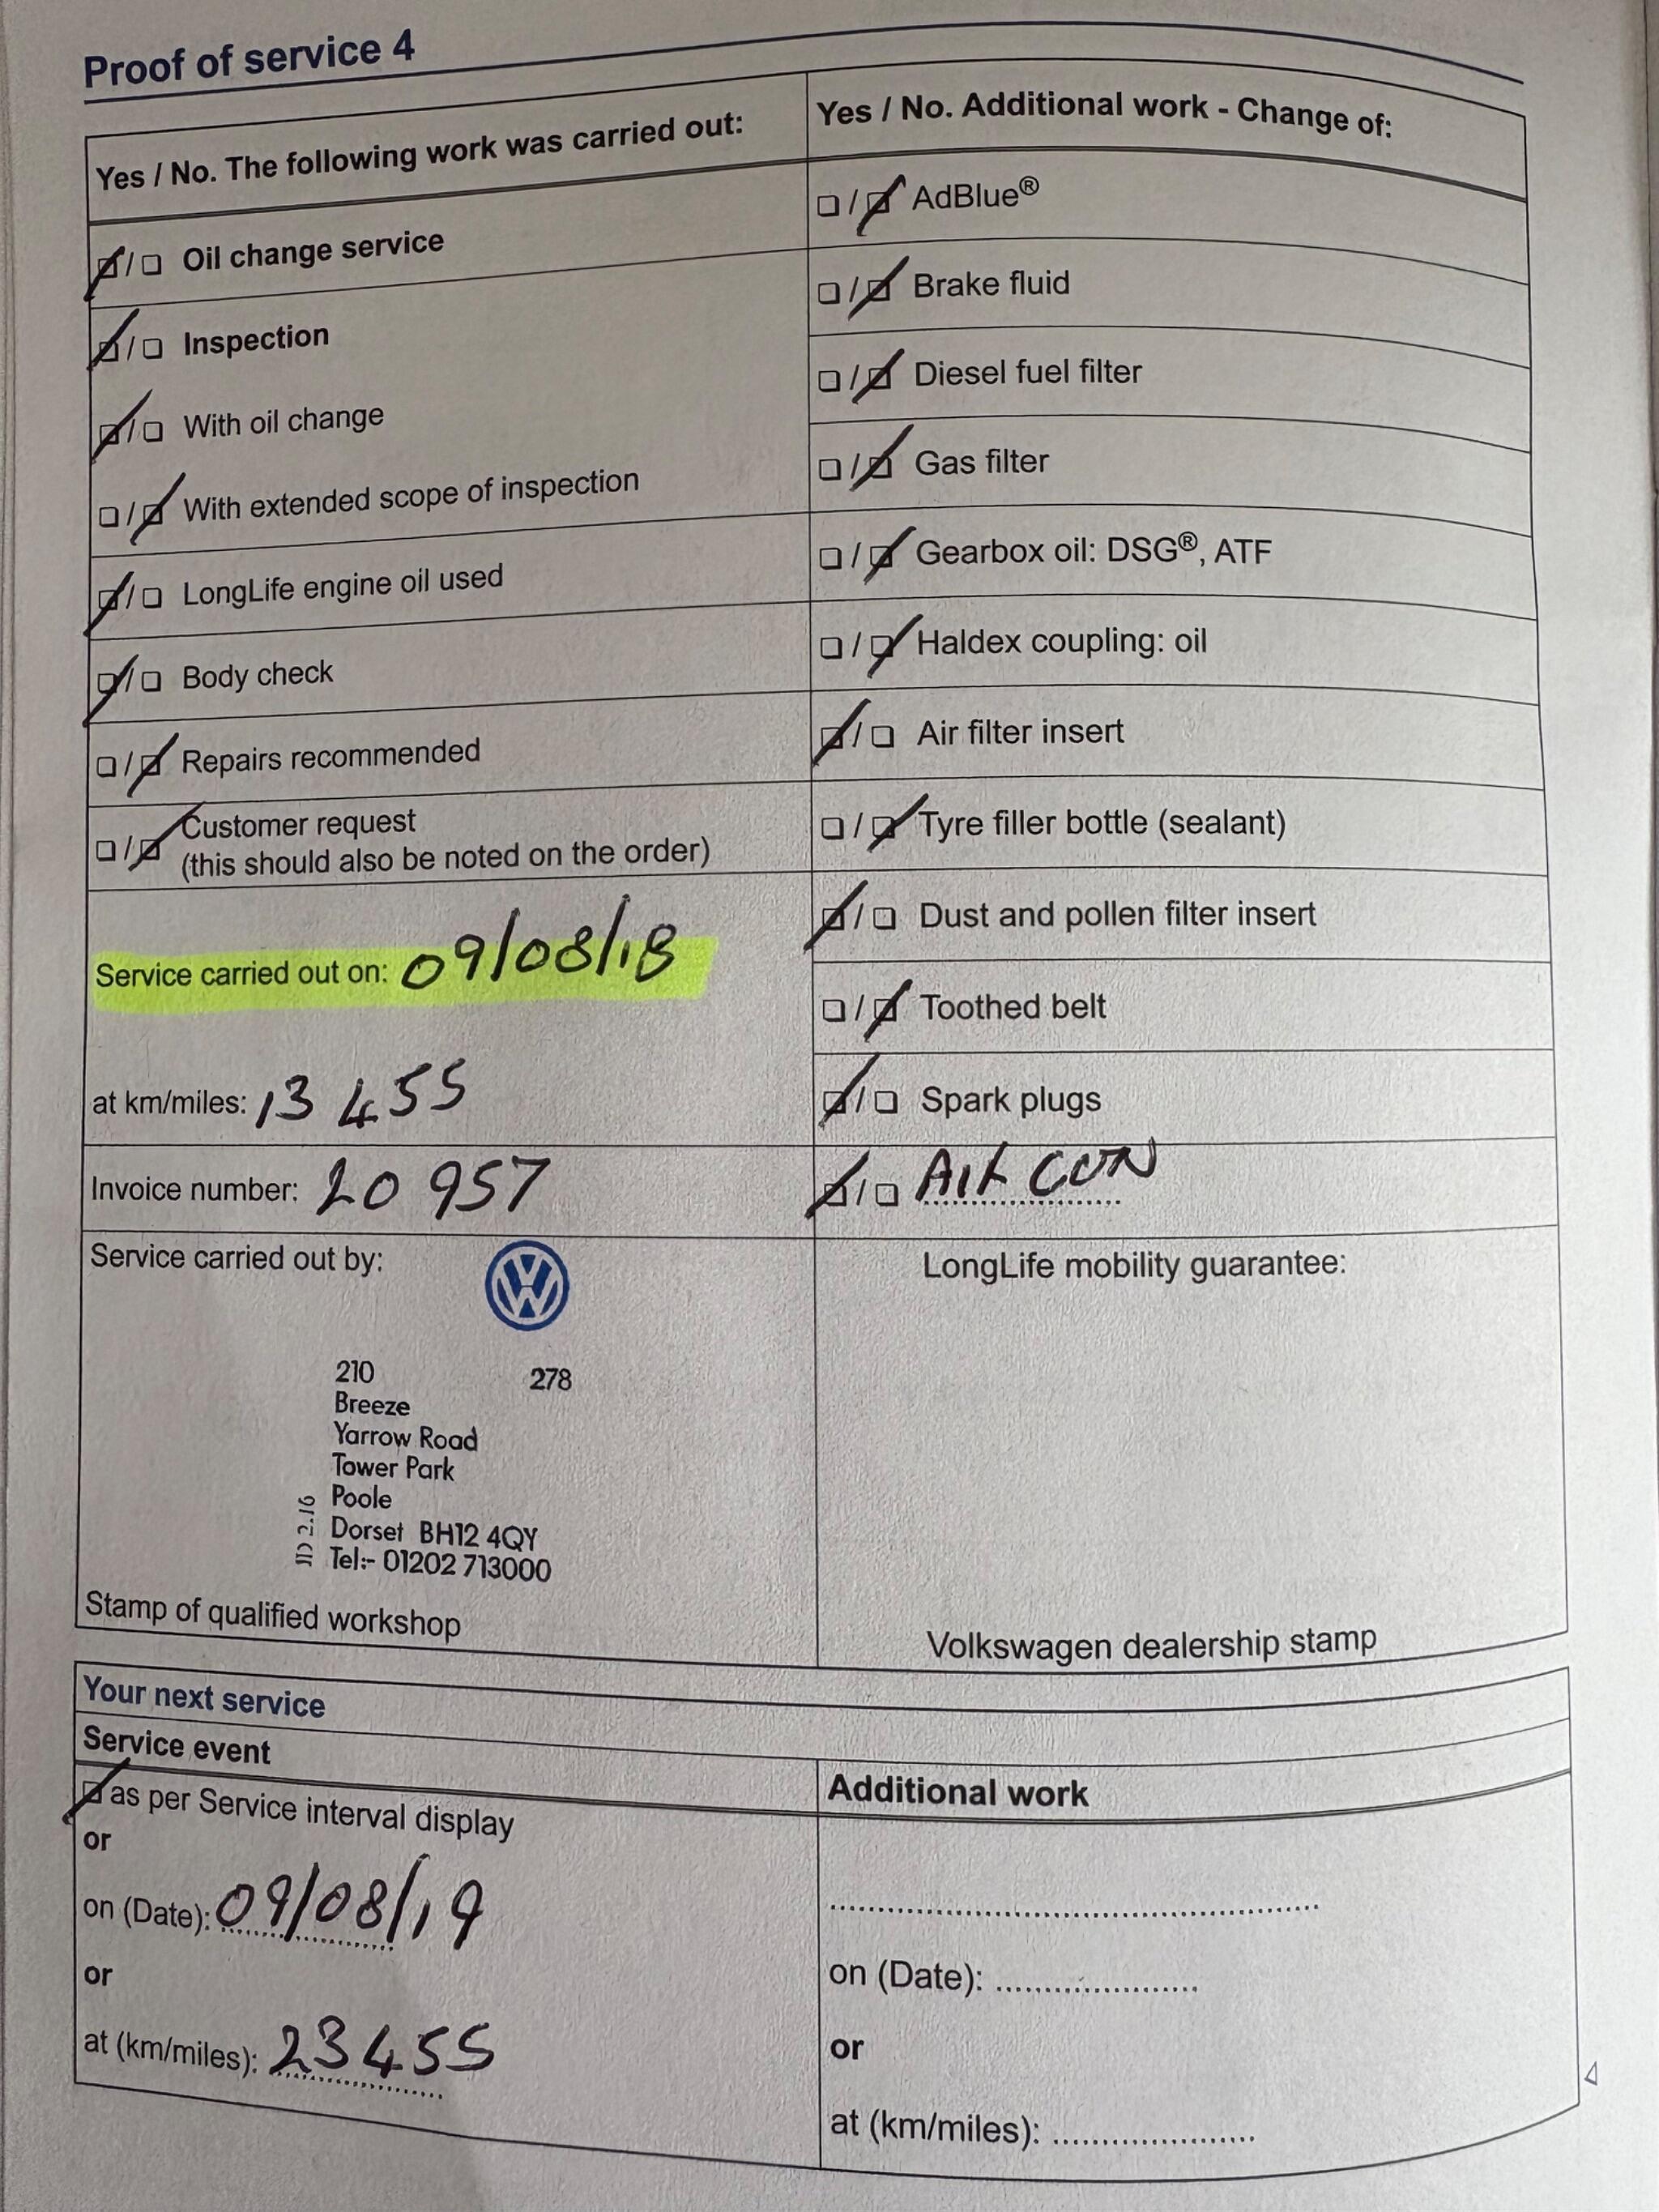 Proof of service 4
Yes / No. The following work was carried out:
Oil change service
Inspection
With oil change
With extended scope of inspection
LongLife engine oil used
Body check
Repairs recommended
Customer request
(this should also be noted on the order)
Service carried out on: 09/08/18
at km/miles: 13 455
Invoice number: 20 957
Service carried out by:
210 278
Breeze
Yarrow Road
Tower Park
Poole
Dorset BH12 4QY
Tel:- 01202 713000
JD 2.16
Stamp of qualified workshop
Yes / No. Additional work - Change of:
AdBlue®
Brake fluid
Diesel fuel filter
Gas filter
Gearbox oil: DSG®, ATF
Haldex coupling: oil
Air filter insert
Tyre filler bottle (sealant)
Dust and pollen filter insert
Toothed belt
Spark plugs
AIR CON
LongLife mobility guarantee:
Volkswagen dealership stamp
Your next service
Service event
as per Service interval display
or
on (Date): 09/08/19
or
at (km/miles): 23455
Additional work
on (Date):
or
at (km/miles):